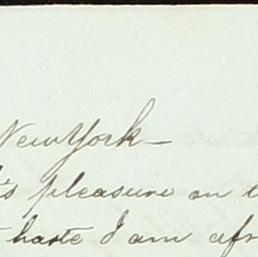 New York—
's pleasure on t
haste I am afr